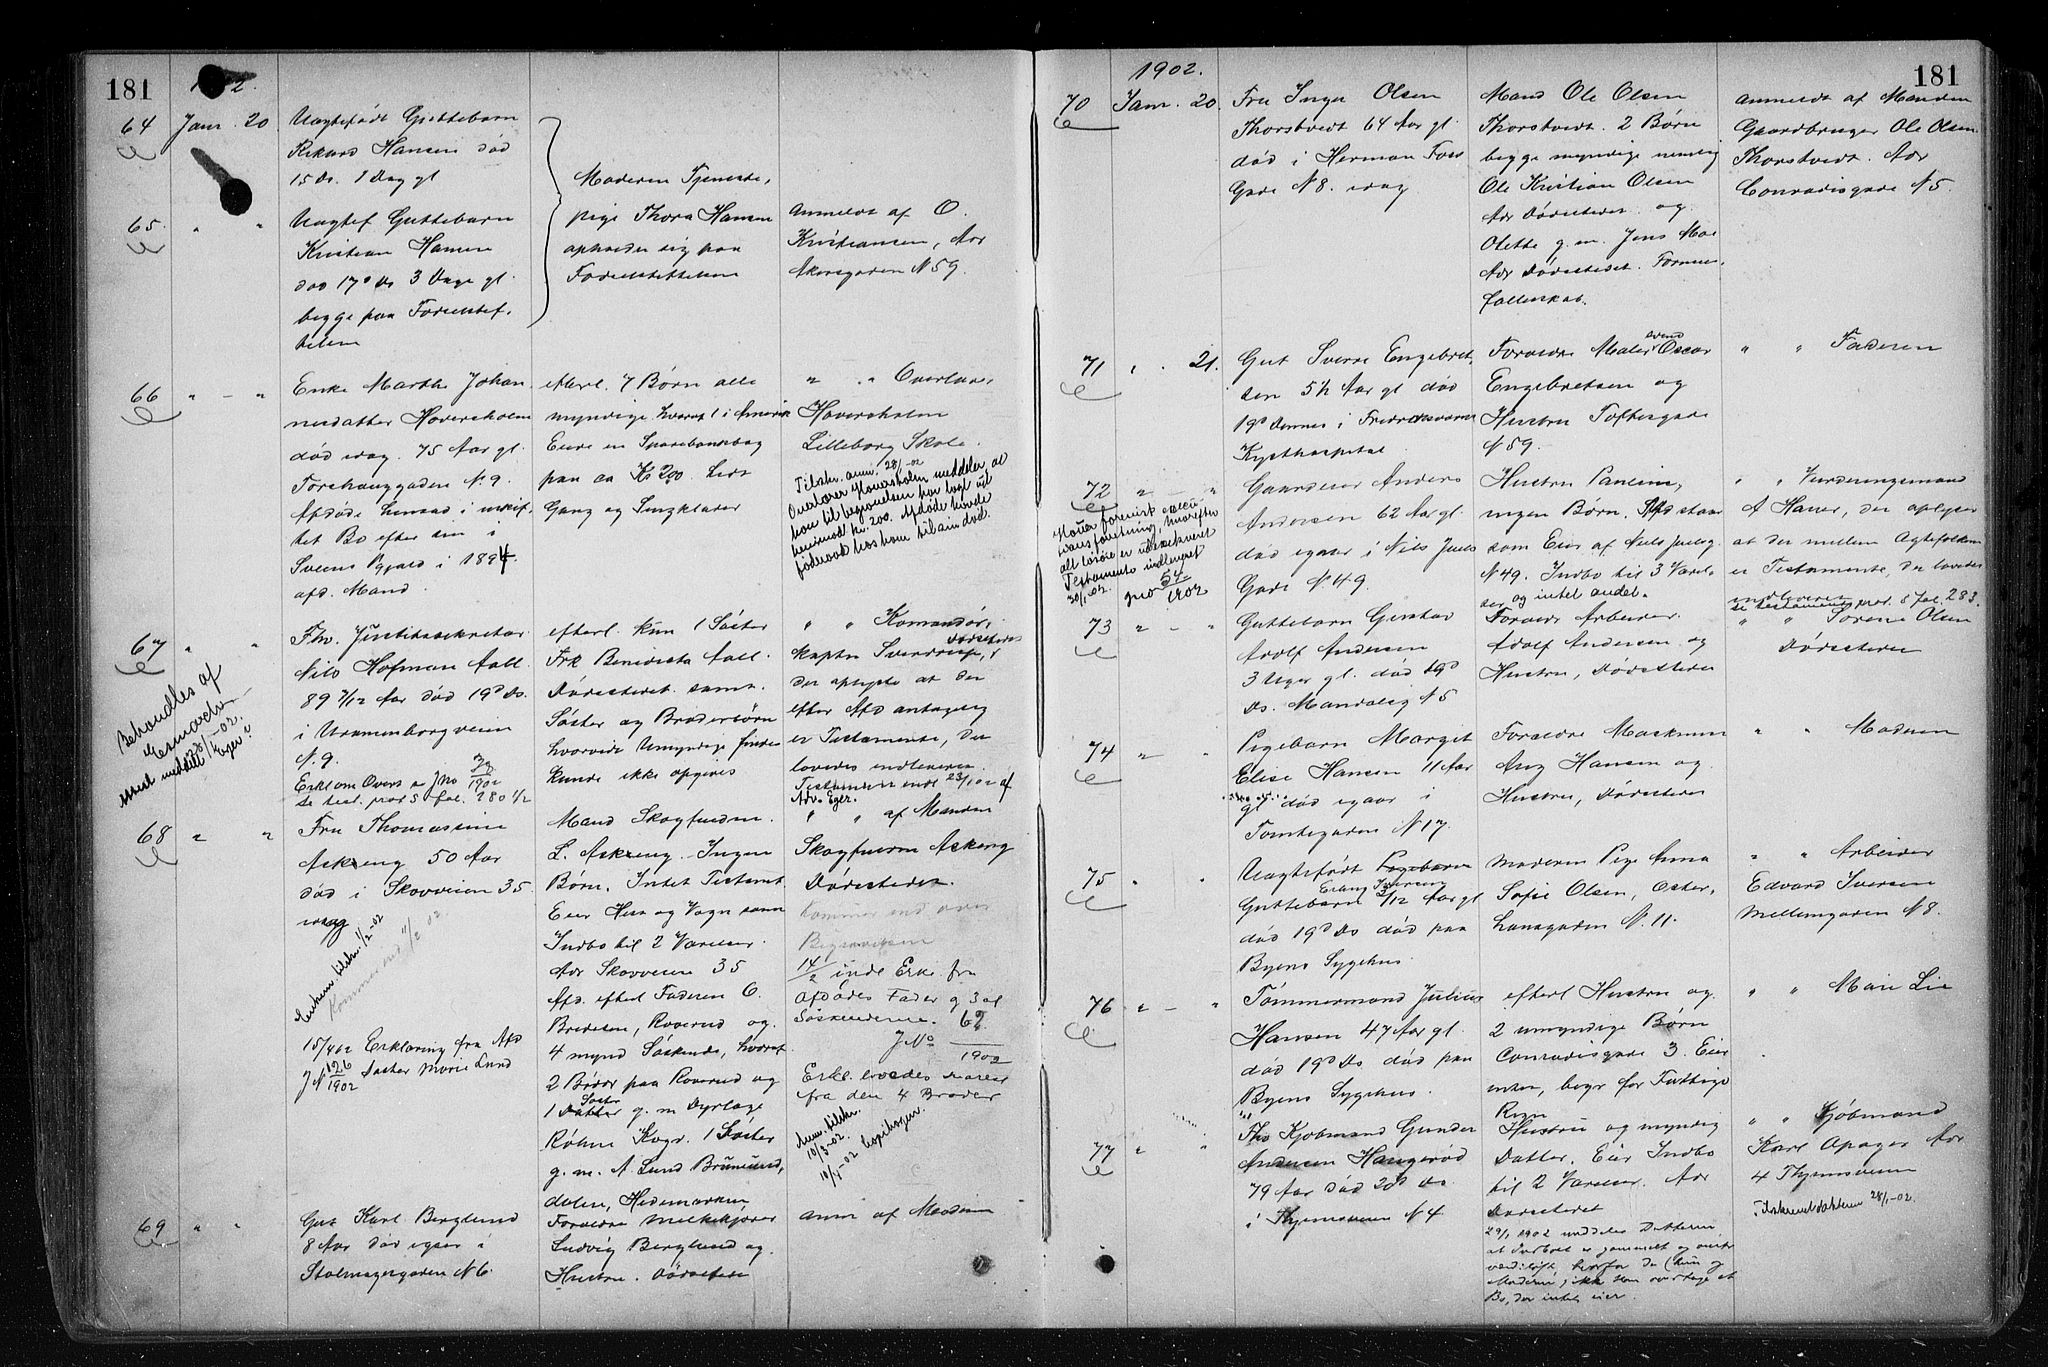 181
1902.
64 Janr. 20
Uægtefødt Guttebarn
Rikard Hansen død
15 Ds. 1 Dag gl
65. " "
Uægtef Guttebarn
Kristian Hansen
død 17de Ds 3 Dage gl.
begge paa Fødselsstif-
telsen
Moderen Tjeneste-
pige Thora Hansen
opholder sig paa
Fødselsstiftelsen
Anmeldt af O.
Kristiansen, Adr
Akersgaden N 59.
66 " - "
Enke Marthe Johan
nesdatter Hoversholm
død idag. 75 Aar gl.
Torshauggaden N. 9.
Afdøde hensad i uskif-
tet Bo efter sin i
1894.
afd. Mand.
efterl. 7 Børn alle
myndige hvoraf 1 i Amerik
Eiede en Sparebankbog
paa ca Kr 200. Lidt
Gang og Sengklæder
" " Overlærer
Hoversholm
Lilleborg Skole.
Tilskr. anm. 28/1-02
Overlærer Hoversholm meddeler at
han til begravelsen har lagt ud
henimod kr. 200. Afdøde havde
föderaad hos ham til sin död.
67 " "
Fhv. Justitssekretær
Nils Hofman Aall
89 7/12 Aar død 19de Ds.
i Uranienborgveien
N. 9.
Erkl om Overs a Jno 39/1902
se test. prot 5 fol. 280 1/2
Behandles af
meddelt 28/1-02.
efterl. kun 1 Søster
Frk Benedicta Aall.
Dødsstedet samt
Søster og Broderbørn
hvorvidt Umyndige findes
kunde ikke opgives
" " Komandør-
kaptn Sverdrup, Dødsstedet
der oplyste at der
efter Afd antagelig
er Testamente, der
lovedes indleveret.
Testamente indl 23/1 02 af
Adv. Eger.
68 " "
Fru Thomassine
Askeng 50 Aar
død i Skovveien 35
idag
Enkem. tilskr. 1/2-02
15/4 02 Erklæring fra Afd
J N 126/1902 Søster Marie Lund
Mand Skogfuldm.
L. Askeng. Ingen
Børn. Intet Testamt
Eier Hest og Vogn samt
Indbo til 2 Værelser.
Adr Skovveien 35
Afd. efterl Faderen O.
Bredesen, Roverud og
4 mynd Søskende, hvoraf
2 Brødr paa Roverud og
1 Søster g. m Dyrlæge
Røhne Kogr. 1 Søster
g. m. A. Lund Brumund-
dalen, Hedemarken
" " af Manden
Skogfuldm Askeng
Dødsstedet.
Kommer ind over
Begravelsen
14/2 inde Erkl fra
Afdødes Fader og 3 af
Søskenderne. 62
J No 1902
Erkl. lovedes snarest
fra den 4 Broder
Anm. tilskr.
10/3-02.
69 " "
Gut Karl Berglund
8 Aar død igaar i
Stolmagergaden N 6.
Forældre Melkekjører
Ludvig Berglund og
Hustru. Dødsstedet
anm af Moderen
1902.
181
70 Janr. 20.
Fru Inger Olsen
Thorstvedt 64 Aar gl.
død i Herman Foss
Gade N 8. idag
Mand Ole Olsen
Thorstvedt. 2 Børn
begge myndige nemlig
Ole Kristian Olsen
Adr Dødsstedet og
Olette g. m. Jens Moe
Adr Dødsstedet. Formues-
fællesskab.
Anmeldt af Manden
Gaardbruger Ole Olsen
Thorstvedt. Adr
Conradisgade N 5.
71 " . 21.
Gut Sverre Engebret-
sen 5 1/2 Aar gl død
19de Dennes i Fredriksværns
Kysthospital
Forældre Malersvend Oscar
Engebretsen og
Hustru Toftesgade
N 59.
" " Faderen
72 " - "
Gaardeier Anders
Andersen 62 Aar gl.
død igaar i Niels Juels
Gade N 49.
alt løsøre er udexekveret
Testamente indleveret
30/1-02. Jno 54/1902
Hustru Pauline,
ingen Børn. Afd staar
som Eier af Niels Juelsg.
N 49. Indbo til 3 Værel-
ser og intet andet.
" " Vurderingsmand
A Hauer, der oplyser
at der mellem Ægtefolkene
er Testamente, der lovedes
indleveret
se testament prot. 5 fol. 283.
73 " - "
Guttebarn Gustav
Adolf Andersen
3 Uger gl. død 19de
Ds. Mandalsg N 5
Forældr Arbeider
Adolf Andersen og
Hustru, Dødsstedet
" " Sørene Olsen
Dødsstedet
74 " "
Pigebarn Margit
Elise Hansen 11 Aar
gl død igaar i
Tomtegaden N 17.
Forældre Maskinm
Aug Hansen og
Hustru, Dødsstedet
" " Moderen
75 " "
Uægtefødt Pigebarn
Guttebarn Erling Iversen 3/12 Aar gl
død 19de Ds død paa
Byens Sygehus.
Moderen Pige Anna
Sofie Olsen, Oster-
hausgaden N. 11.
" " Arbeider
Edvard Iversen
Mellemgaden N 8.
76 " - "
Tømmermand Julius
Hansen 47 Aar gl.
død 19de Ds død paa
Byens Sygehus.
efterl Hustru og
2 umyndige Børn
Conradisgade 3. Eier
intet, begr for Fattige
" " Mari Lie
77 " "
Fhv Kjøbmand Gunder
Andersen Haugerød
79 Aar død 20de Ds
i Thymesveien N 4
Hustru og myndig
Datter. Eier Indbo
til 2 Værelser. Adr
Dødsstedet
29/1 1902 meddeler Datteren
at Indboet er gammelt og
værdiløst, hvorfor de (hun og
Moderen) ikke vil overtage et
Bo, der intet eier.
" " Kjøbmand
Karl Adr
4 Thymesveien
Tilskrevet datteren 28/1-02.